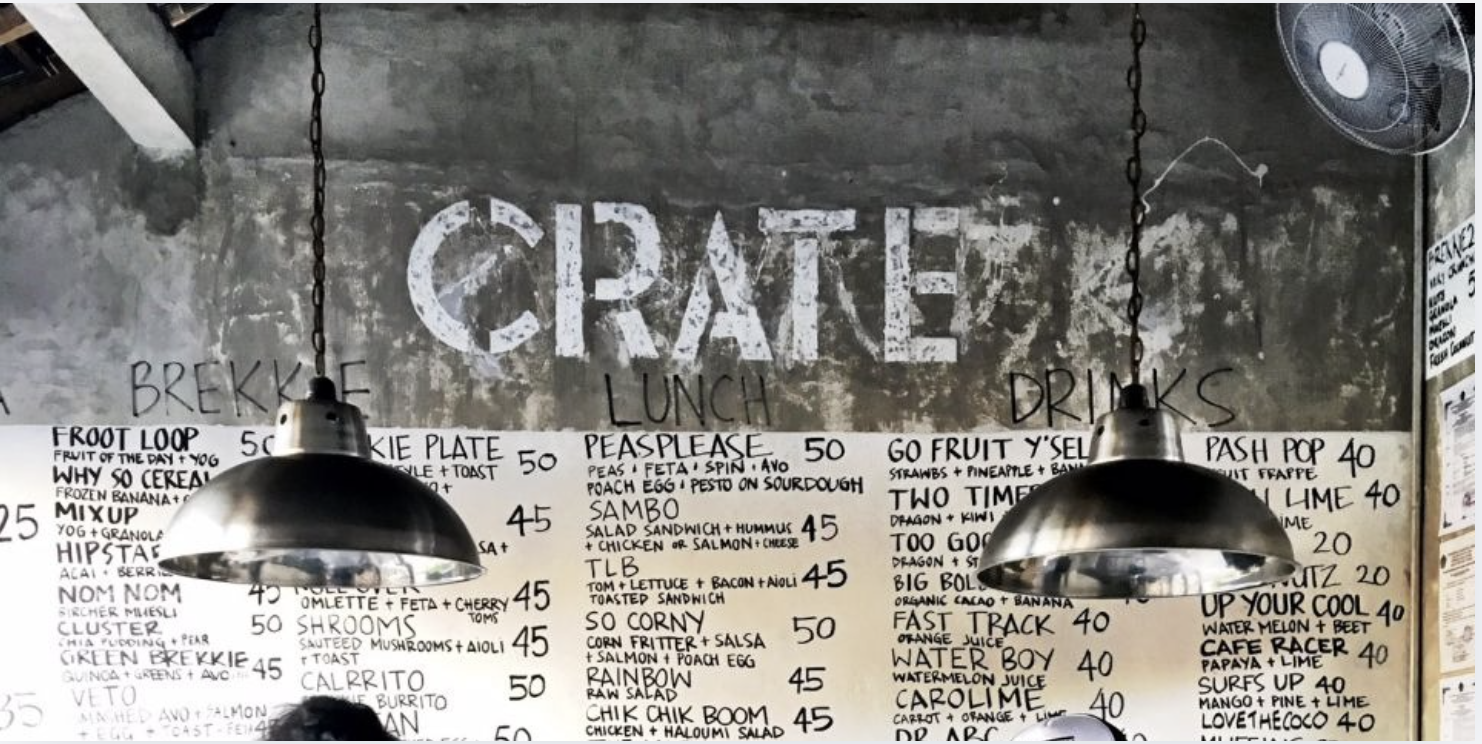 CRATE
BREKKIE
LUNCH
DRINKS
25
35
FROOT LOOP 50
FRUIT OF THE DAY + YOG
WHY SO CEREAL
FROZEN BANANA +
MIXUP
YOG + GRANOLA
HIPSTAR
ACAI + BERRIE
NOM NOM 45
BIRCHER MUESLI
CLUSTER 50
CHIA PUDDING + PEAR
GREEN BREKKIE 45
QUINOA + GREENS + AVO
VETO
MASHED AVO + SALMON
+ EGG + TOAST - FETA 45
KIE PLATE 50
STYLE + TOAST
45
SA +
OMLETTE + FETA + CHERRY 45
TOMS
SHROOMS
SAUTEED MUSHROOMS + AIOLI 45
+ TOAST
CALRRITO 50
BURRITO
AN
50
PEASPLEASE 50
PEAS + FETA + SPIN + AVO
POACH EGG + PESTO ON SOURDOUGH
SAMBO
SALAD SANDWICH + HUMMUS 45
+ CHICKEN OR SALMON + CHEESE
TLB
TOM + LETTUCE + BACON + AIOLI 45
TOASTED SANDWICH
SO CORNY 50
CORN FRITTER + SALSA
+ SALMON + POACH EGG
RAINBOW 45
RAW SALAD
CHIK CHIK BOOM 45
CHICKEN + HALOUMI SALAD
GO FRUIT Y'SEL
STRAWBS + PINEAPPLE + BANA
TWO TIME
DRAGON + KIWI
TOO GO
DRAGON + ST
BIG BOL
ORGANIC CACAO + BANANA
FAST TRACK 40
ORANGE JUICE
WATER BOY 40
WATERMELON JUICE
CAROLIME 40
CARROT + ORANGE + LIME
DR ABC
PASH POP 40
FRUIT FRAPPE
LIME 40
LIME
20
NUTZ 20
UP YOUR COOL 40
WATER MELON + BEET
CAFE RACER 40
PAPAYA + LIME
SURFS UP 40
MANGO + PINE + LIME
LOVETHECOCO 40
BREKKIE2
NUTS
GRANOLA
MUESLI
DRAGON
FRESH COCONUT